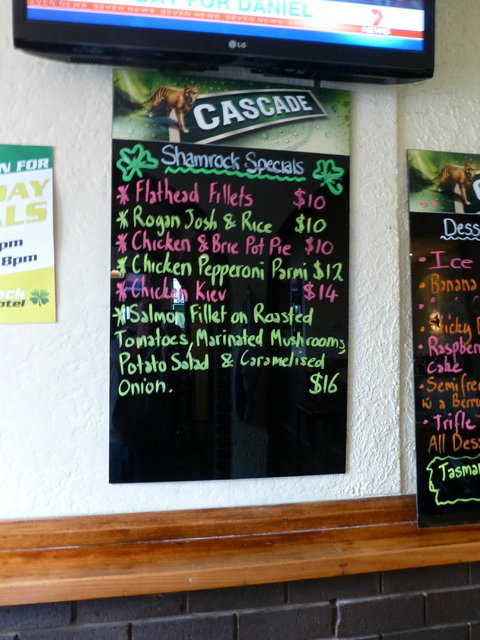 FOR DANIEL
SEVEN NEWS SEVEN NEWS SEVEN NEWS SEVEN NEWS
7
LG
N FOR
DAY
pm
8pm
CASCADE
Shamrock Specials
* Flathead Fillets $10
* Rogan Josh & Rice $10
* Chicken & Brie Pot Pie $10
* Chicken Pepperoni Parmi $12
* Chicken Kiev $14
* Salmon Fillet on Roasted
Tomatoes, Marinated Mushrooms,
Potato Salad & Caramelised
Onion. $16
Dess
• Ice
• Banana
• Sticky
• Raspber
Cake
• Semifre
w a Berr
• Trifle
All Dess
Tasma